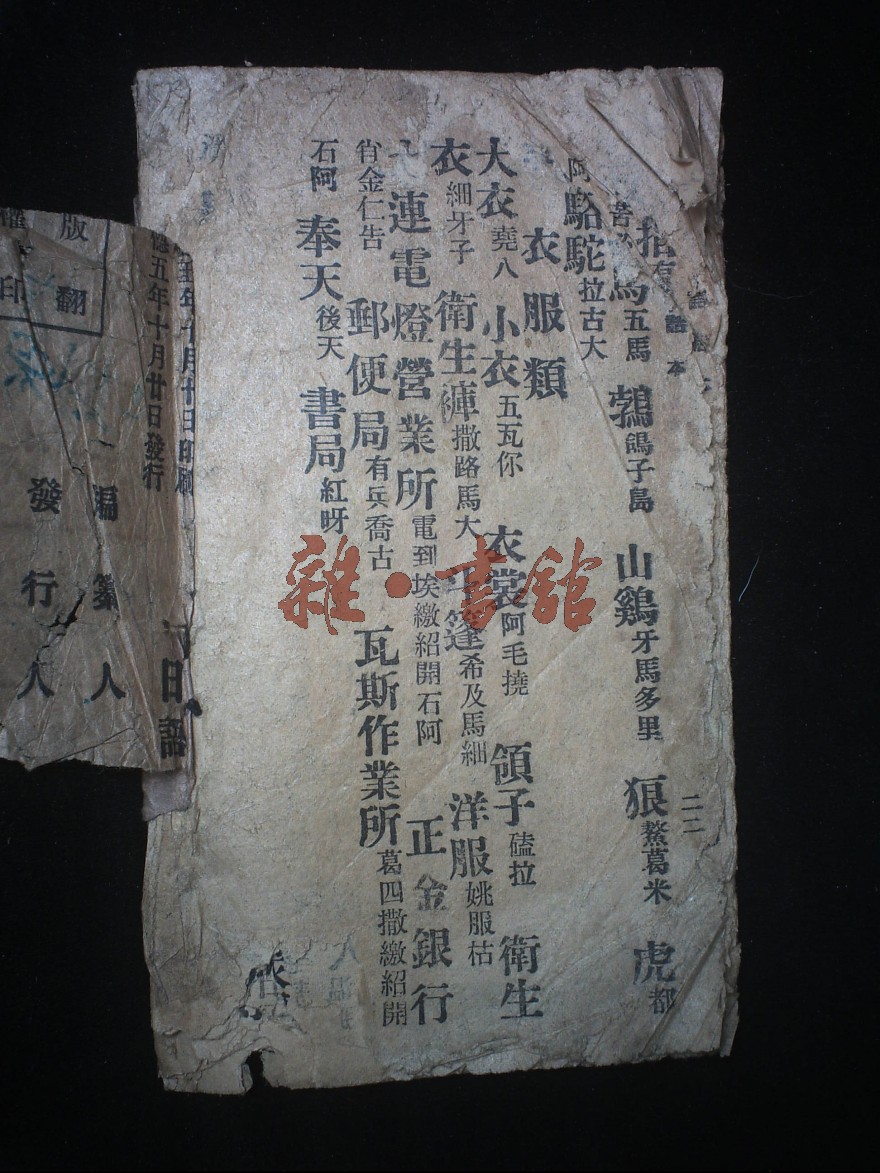 語本
二二
馬五馬 鵓鴿子島 山鷄牙馬多里 狼鰲葛米 虎都
阿 駱駝拉古大
衣服類
大衣堯八 小衣五瓦你 衣裳阿毛撓 領子磕拉 衛生
衣細牙子 衛生褲撒路馬大 斗篷希及馬細 洋服姚服枯
連電燈營業所電到埃繳紹開石阿 正金銀行
省金仁告 郵便局有兵喬古 瓦斯作業所葛四撒繳紹開
石阿 奉天後天 書局紅呀
年十月十日印刷
五年十月廿日發行
日語
編纂人
發行人
版權
翻印
雜·書館